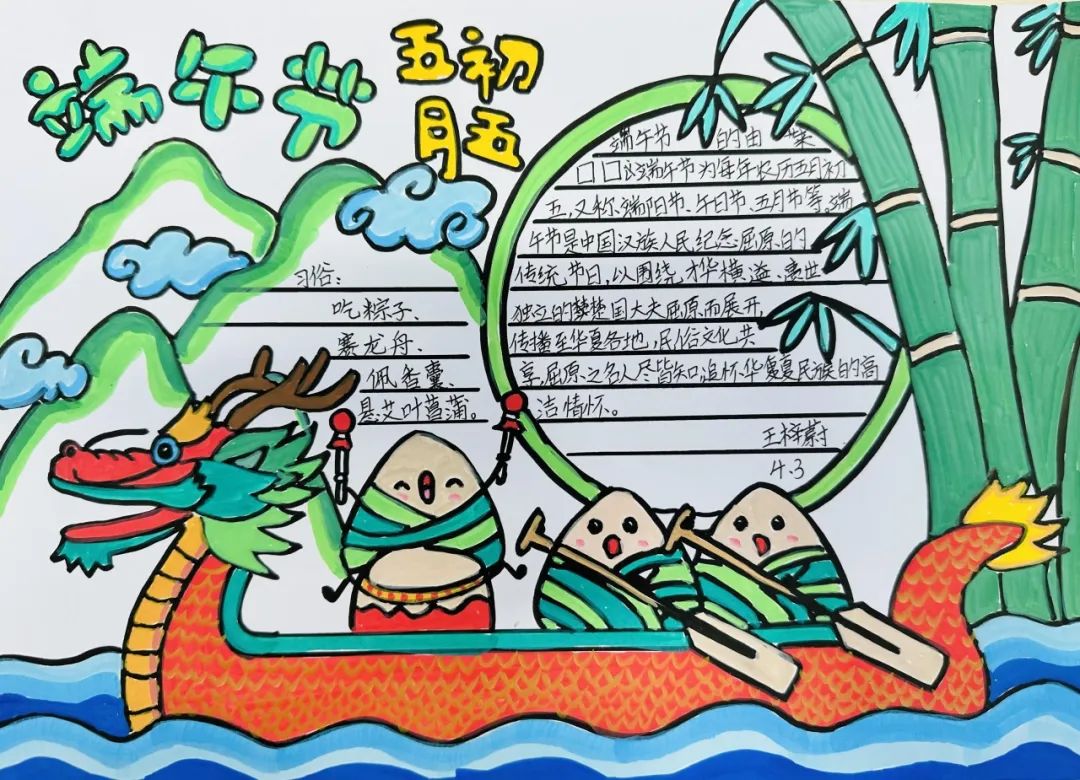 端午节
五初
月五
端午节 的由来
□□这端午节为每年农历五月初
五,又称端阳节、午日节、五月节等。端
午节是中国汉族人民纪念屈原的
传统节日,以围绕才华横溢、离世
独立的楚楚国大夫屈原而展开,
传播至华夏各地,民俗文化共
享,屈原之名人尽皆知,追怀华夏夏民族的高
洁情怀。
王梓蔚
4.3
习俗:
吃粽子、
赛龙舟、
佩香囊、
悬艾叶菖蒲。